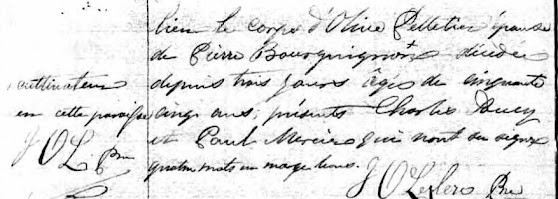 lieu le corps d'Olive Pelletier épouse
de Pierre Bourguignon + décédée
depuis trois jours agée de cinquante
cinq ans; présents Charles
et Paul Mercier qui n'ont su signer
quatre mots en marge bons.
J O Leclerc Ptre
cultivateur
en cette paroisse
J O L. Ptre